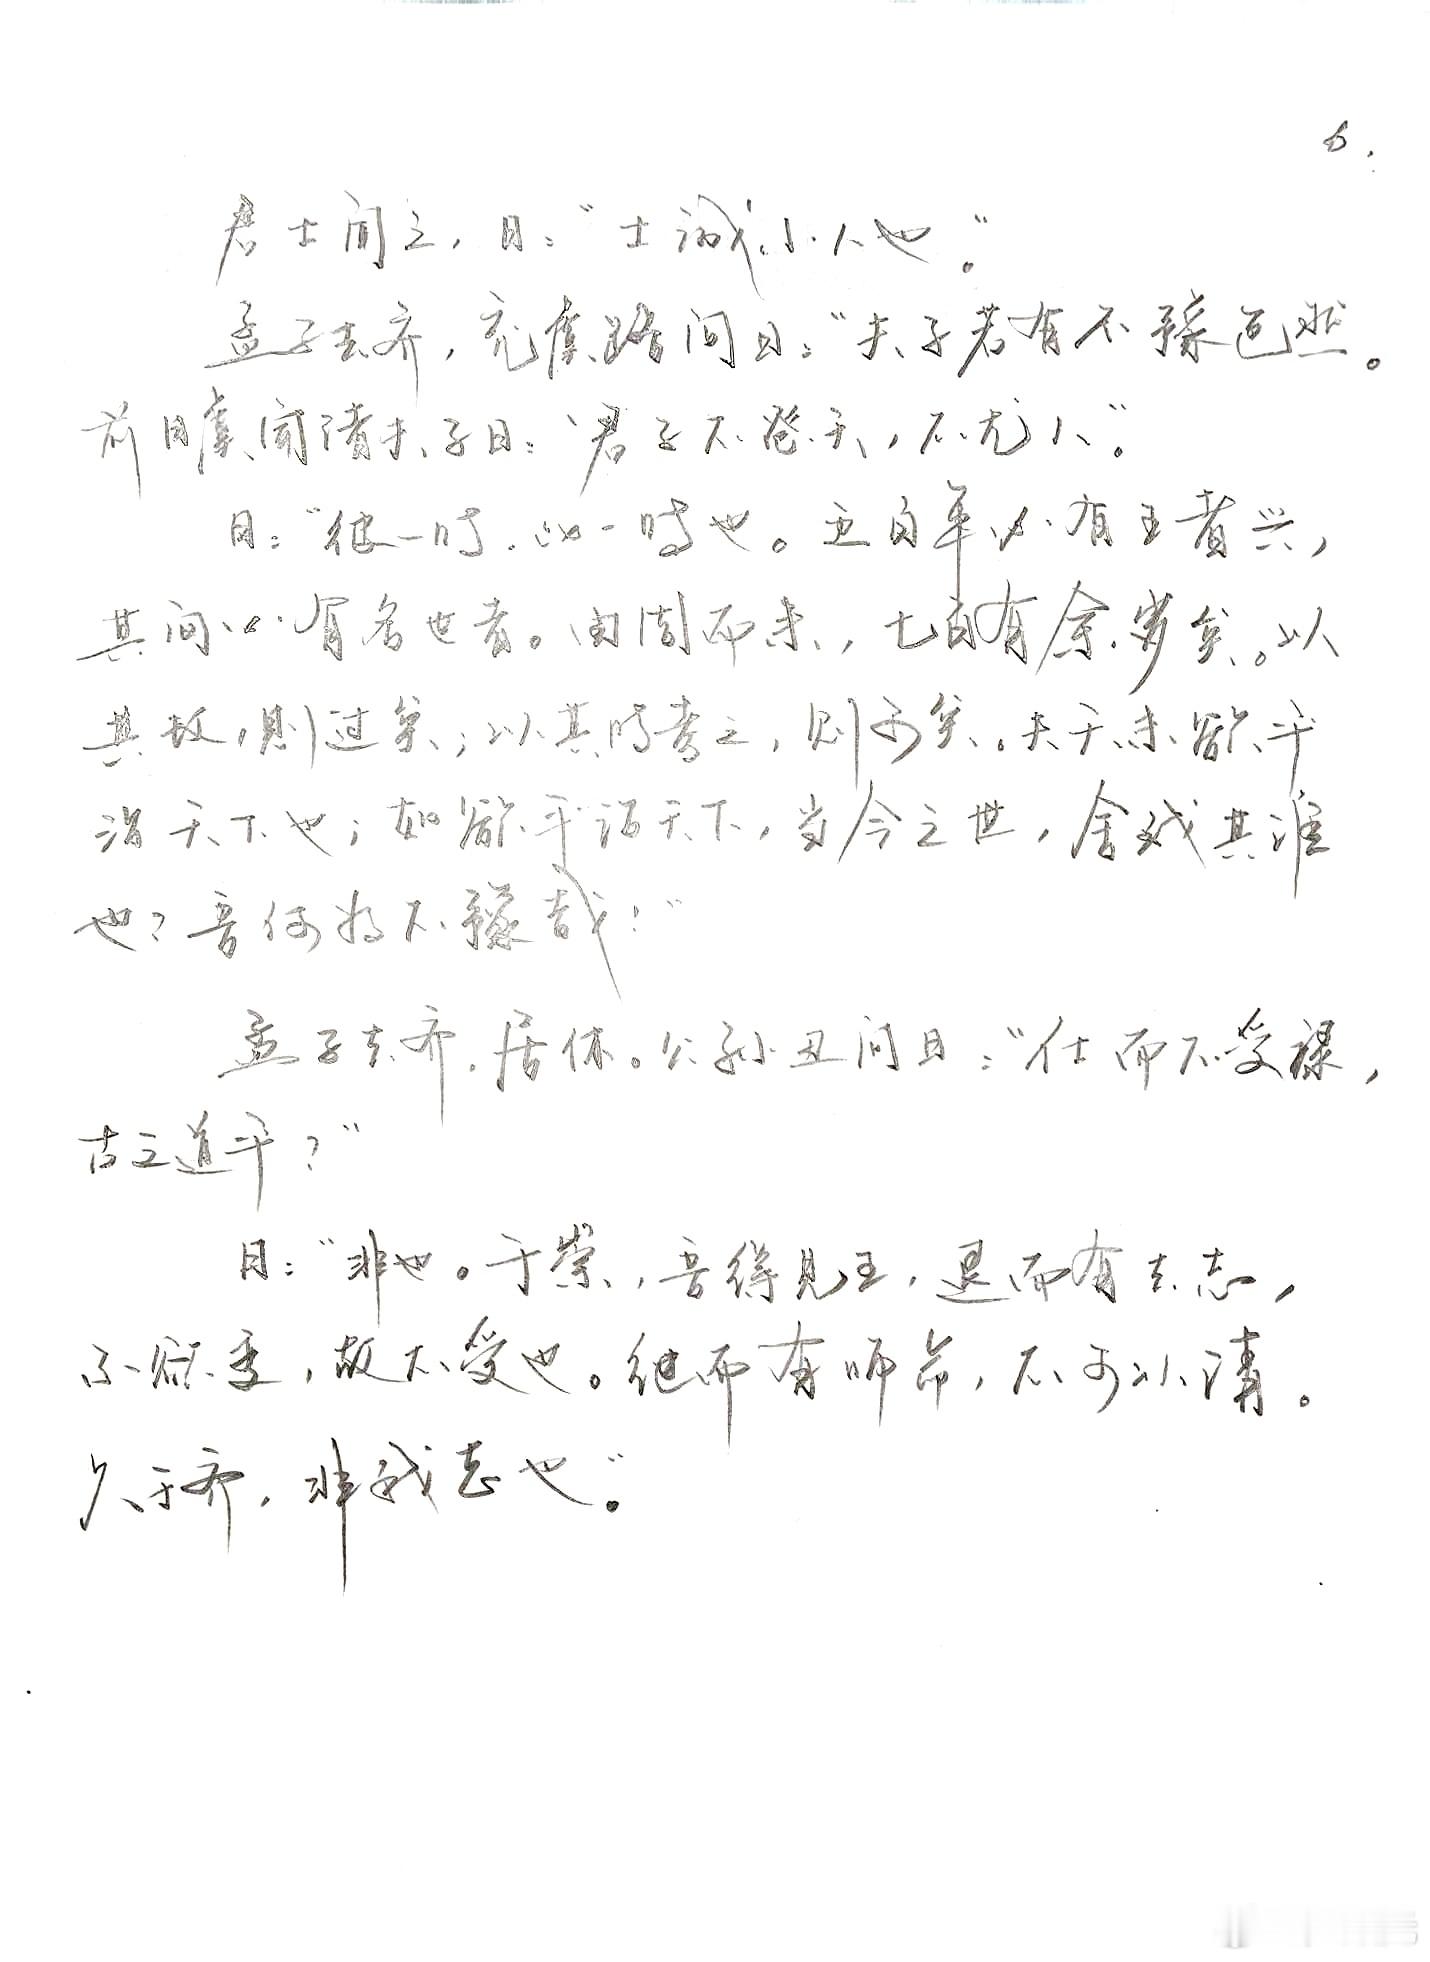 6.
君士闻之，曰：“士诚小人也”。
孟子去齐，充虞路问曰：“夫子若有不豫色然。
前日虞闻诸夫子曰：‘君子不怨天，不尤人’”。
曰：“彼一时，此一时也。五百年必有王者兴，
其间必有名世者。由周而来，七百有余岁矣。以
其数，则过矣；以其时考之，则可矣。夫天未欲平
治天下也；如欲平治天下，当今之世，舍我其谁
也？吾何为不豫哉！”
孟子去齐，居休。公孙丑问曰：“仕而不受禄，
古之道乎？”
曰：“非也。于崇，吾得见王，退而有去志，
不欲变，故不受也。继而有师命，不可以请。
久于齐，非我志也”。